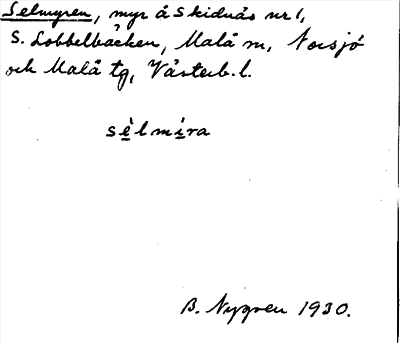 Selmyren, myr å Skidnäs nr 1,
S. Lobbelbäcken, Malå sn, Norsjö
och Malå tg, Västerb. l.
sèlmira
B. Nygren 1930.